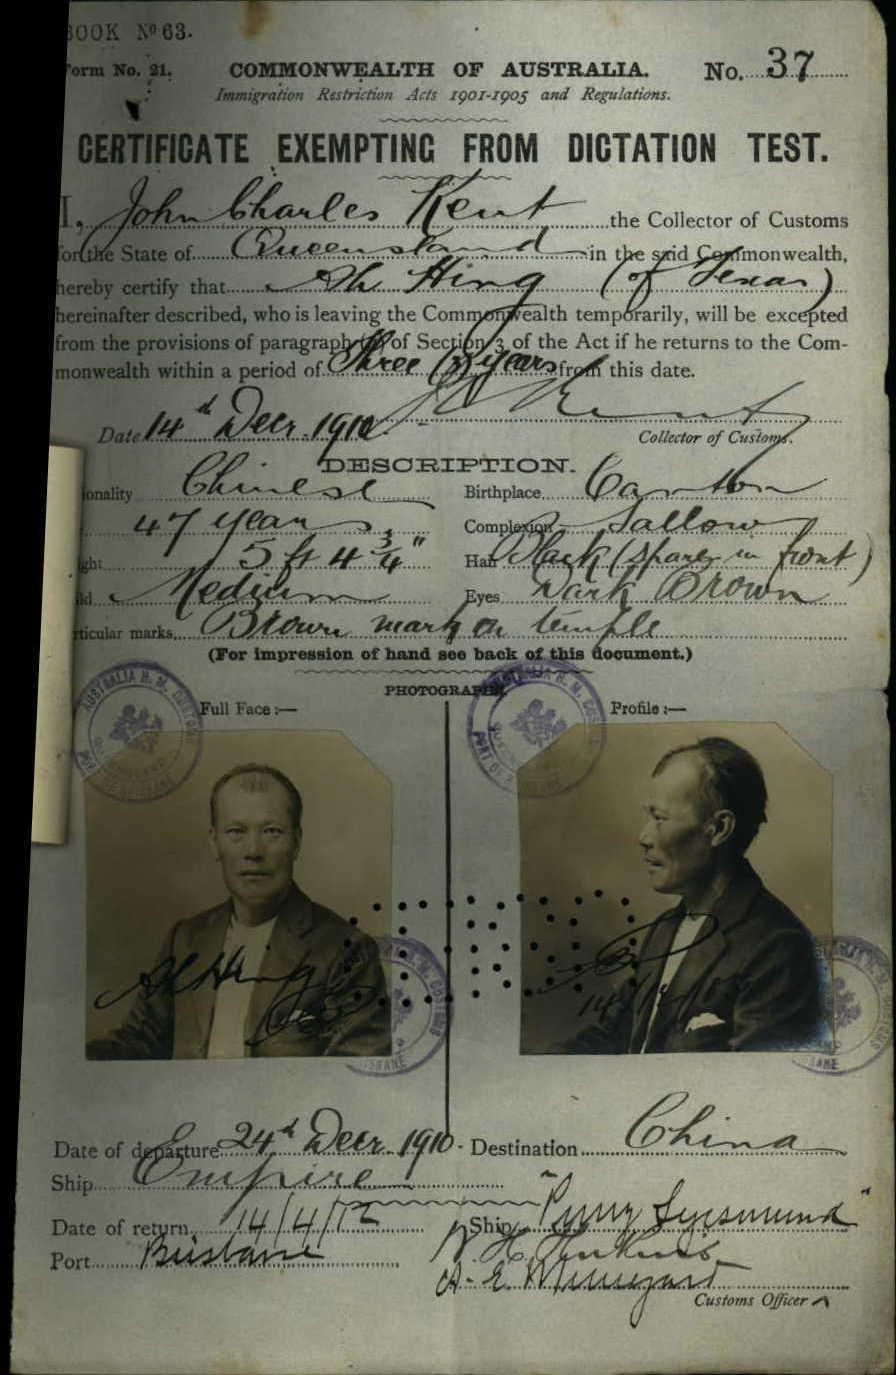 BOOK No 63.
Form No. 21. COMMONWEALTH OF AUSTRALIA. No. 37
Immigration Restriction Acts 1901-1905 and Regulations.
CERTIFICATE EXEMPTING FROM DICTATION TEST.
I, John Charles Kent the Collector of Customs
for the State of Queensland in the said Commonwealth,
hereby certify that Ah Hing (of Texas)
hereinafter described, who is leaving the Commonwealth temporarily, will be excepted
from the provisions of paragraph of Section 3 of the Act if he returns to the Com-
monwealth within a period of Three (3) years from this date.
Kent
Date 14th Decr. 1910 Collector of Customs.
DESCRIPTION.
ionality Chinese Birthplace Canton
47 years Complexion Sallow
ght 5 ft 4 3/4" Hair Black (sparse in front)
ld Medium Eyes Dark Brown
rticular marks Brown mark on temple
(For impression of hand see back of this document.)
PHOTOGRAPHS.
Full Face :— Profile :—
AUSTRALIA H. M. CUSTOMS
AUSTRALIA H. M. CUSTOMS PORT OF
Ah Hing
14/12/10
BRISBANE
Date of departure 24th Decr. 1910 Destination China
Ship Empire
Date of return 14/4/12 Ship "Prinz Sigismund"
Port Brisbane
Customs Officer